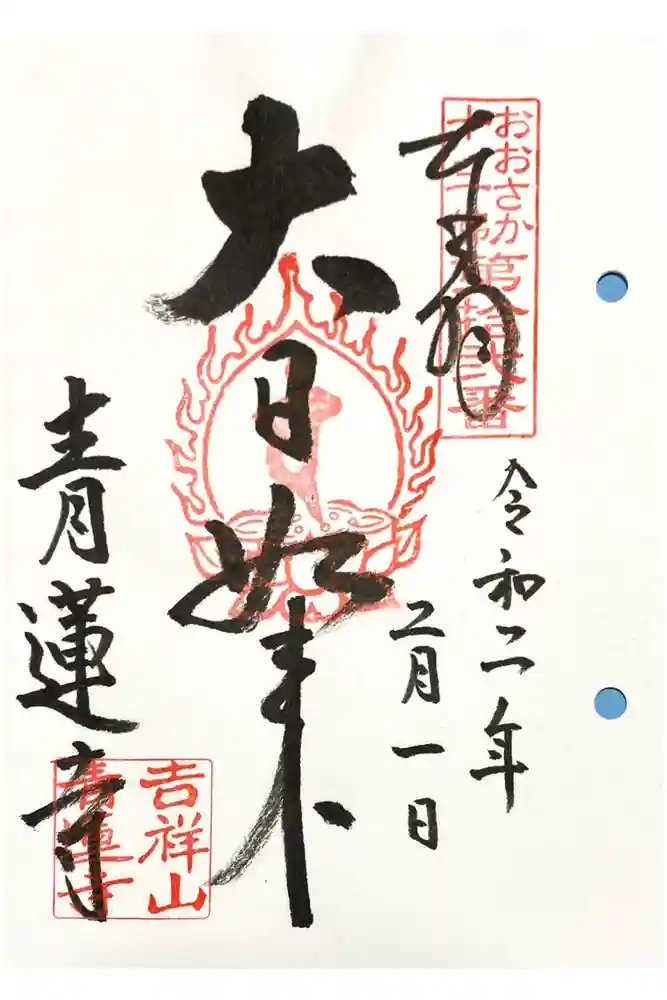 おおさか
十三佛第拾弐番
奉拝
令和二年
二月一日
大日如来
青蓮寺
吉祥山
青蓮寺